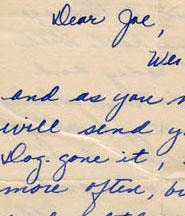 Dear Joe,
We
and as you
will send y
Dog-gone it,
more often, bu